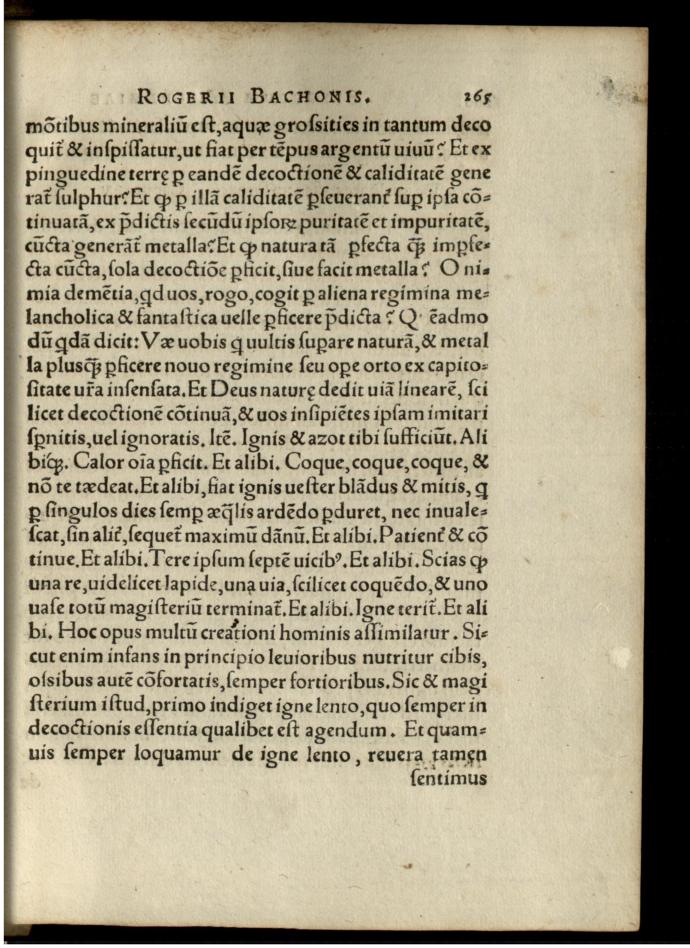 ROGERII BACHONIS. 265
mōtibus mineraliū est, aquæ grossities in tantum deco
quit̄ & inspissatur, ut fiat per tēpus argentū uiuū? Et ex
pinguedine terrę ꝑ eandē decoctionē & caliditatē gene
rat̄ sulphur? Et ꝙ ꝑ illā caliditatē ꝑseuerant̄ suꝑ ipsa cō-
tinuatā, ex p̄dictis secūdū ipsoꝝ puritatē et impuritatē,
cūcta generāt̄ metalla? Et ꝙ natura tā ꝑfecta q̄ꝫ imꝑfe-
cta cūcta, sola decoctiōe ꝑficit, siue facit metalla? O ni-
mia demētia, qd uos, rogo, cogit ꝑ aliena regimina me-
lancholica & fantastica uelle ꝑficere p̄dicta? Q ēadmo
dū qdā dicit: Væ uobis q uultis suꝑare naturā, & metal
la plusq̄ꝫ ꝑficere nouo regimine seu oꝑe orto ex capito-
sitate ur̄a insensata. Et Deus naturę dedit uiā linearē, sci
licet decoctionē cōtinuā, & uos insipiētes ipsam imitari
sꝑnitis, uel ignoratis. Itē. Ignis & azot tibi sufficiūt. Ali
biq̄ꝫ. Calor oīa ꝑficit. Et alibi. Coque, coque, coque, &
nō te tædeat. Et alibi, fiat ignis uester blādus & mitis, q
ꝑ singulos dies semꝑ æq̄lis ardēdo ꝑduret, nec inuale-
scat, sin alit̄, sequet̄ maximū dānū. Et alibi. Patient̄ & cō
tinue. Et alibi. Tere ipsum septē uicibꝰ. Et alibi. Scias ꝙ
una re, uidelicet lapide, una uia, scilicet coquēdo, & uno
uase totū magisteriū terminat̄. Et alibi. Igne terit̄. Et ali
bi. Hoc opus multū creationi hominis assimilatur. Si-
cut enim infans in principio leuioribus nutritur cibis,
ossibus autē cōfortatis, semper fortioribus. Sic & magi
sterium istud, primo indiget igne lento, quo semper in
decoctionis essentia qualibet est agendum. Et quam-
uis semper loquamur de igne lento, reuera tamen
sentimus